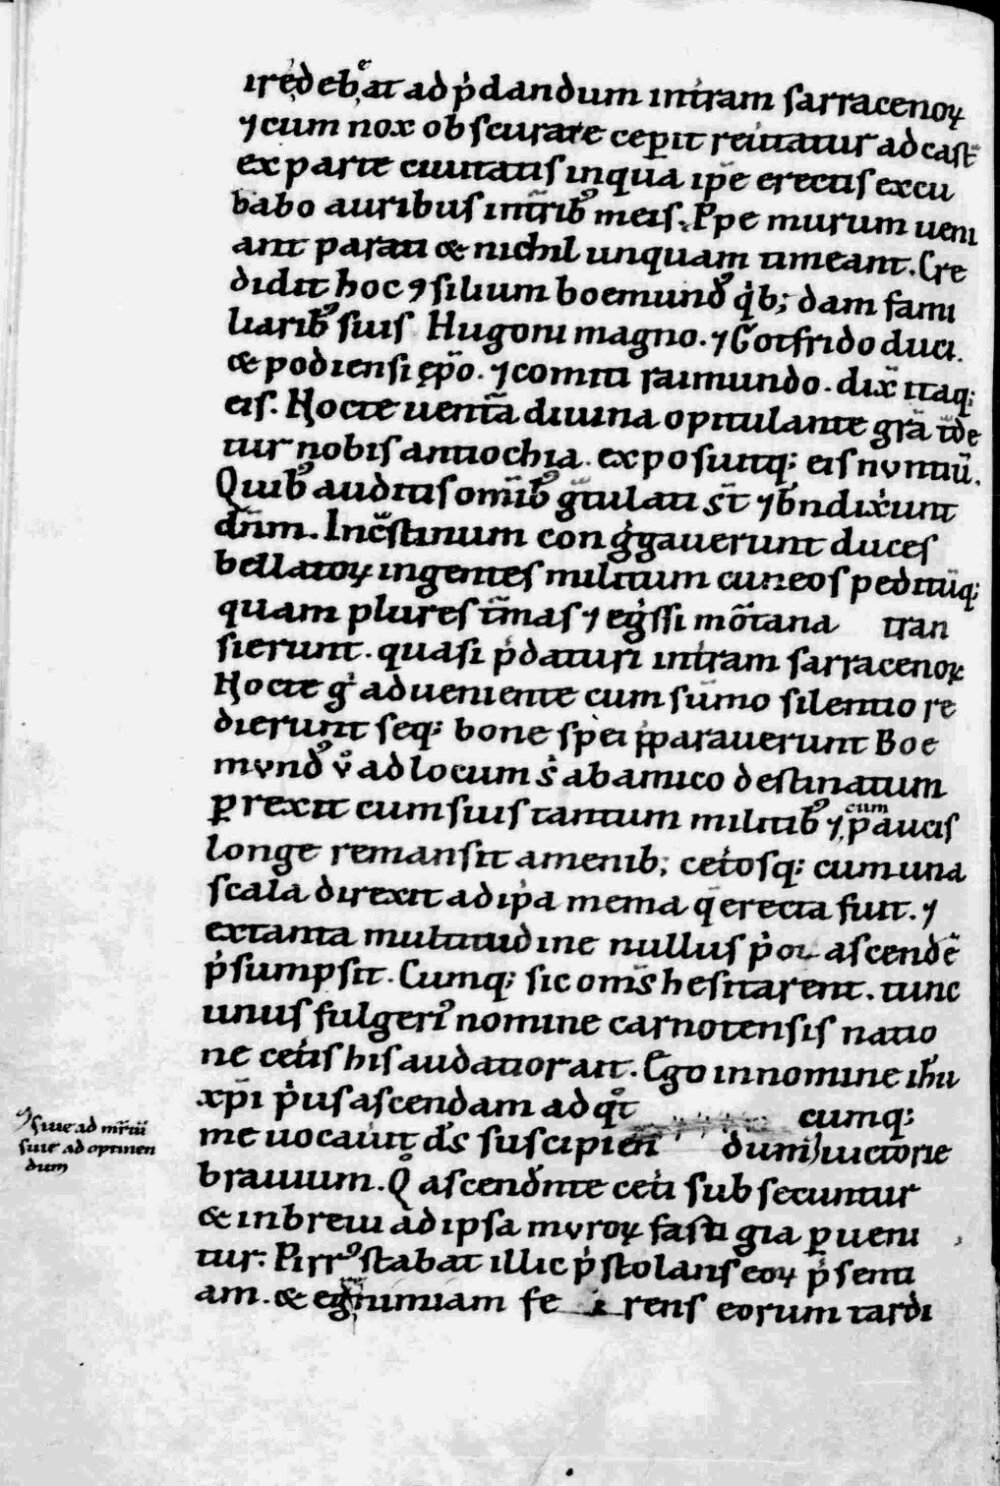 iredebeat ad p̓dandum int̓ram sarracenoꝝ
⁊ cum nox obscurare ceperit reuitatur ad cast̄
ex parte ciuitatis inqua ip̄e erectis excu
babo auribus int̄ribꝰ meis. Ppe murum ueni
ant parati & nichil unquam timeant. Cre
didit hoc ꝯsilium boemundꝰ q̓b; dam fami
liaribꝰ suis Hugoni magno. ⁊ Gotfrido duci.
& podiensi ep̄o. ⁊ comiti raimundo. dix̄ itaq;
eis. Nocte uent̄a diuina opitulante gr̄a t̄de
tur nobis antiochia. exposuitq; eis nuntiū.
Quibꝰ auditis om̄ibꝰ g̓tulati s̄t ⁊ b̄ndix̓unt
dn̄m. Inc̓stinum cong̓gauerunt duces
bellatoꝝ ingentes militum cuneos peditūq;
quam plures t̄mas ⁊ eg̓ssi mōtana tran
sierunt. quasi p̓daturi int̓ram sarracenoꝝ
Nocte g̓ adueniente cum sūmo silentio re
dierunt seq; bone spei p̓parauerunt Boe
mundꝰ v̊ ad locum s̓ abamico destinatum
ꝑrexit cum suis tantum militibꝰ ⁊ cum paucis
longe remansit amenib; cet̓osq; cum una
scala direxit adip̓a menia q̄ erecta fuit. ⁊
extanta multitudine nullus p̓or ascendē
p̓sumpsit. Cumq; sic om̄s hesitarent. tunc
unus fulgeriꝰ nomine carnotensis natio
ne cet̓is his audatior ait. Ego in nomine ih̄u
xp̄i p̓us ascendam ad qͦt cumq;
me uocau̓it d̄s suscipien dum uictorie
ꝯ siue ad mr̄iū
siue ad optinen
dum
brauium. Qͦ ascendn̄te cet̓i sub secuntur
& inbreui ad ipsa muroꝝ fastigia ꝑueni
tur: Pirrꝰ stabat illic p̓stolans eoꝝ p̓senti
am. & egre nimiam fe rens eorum tardi